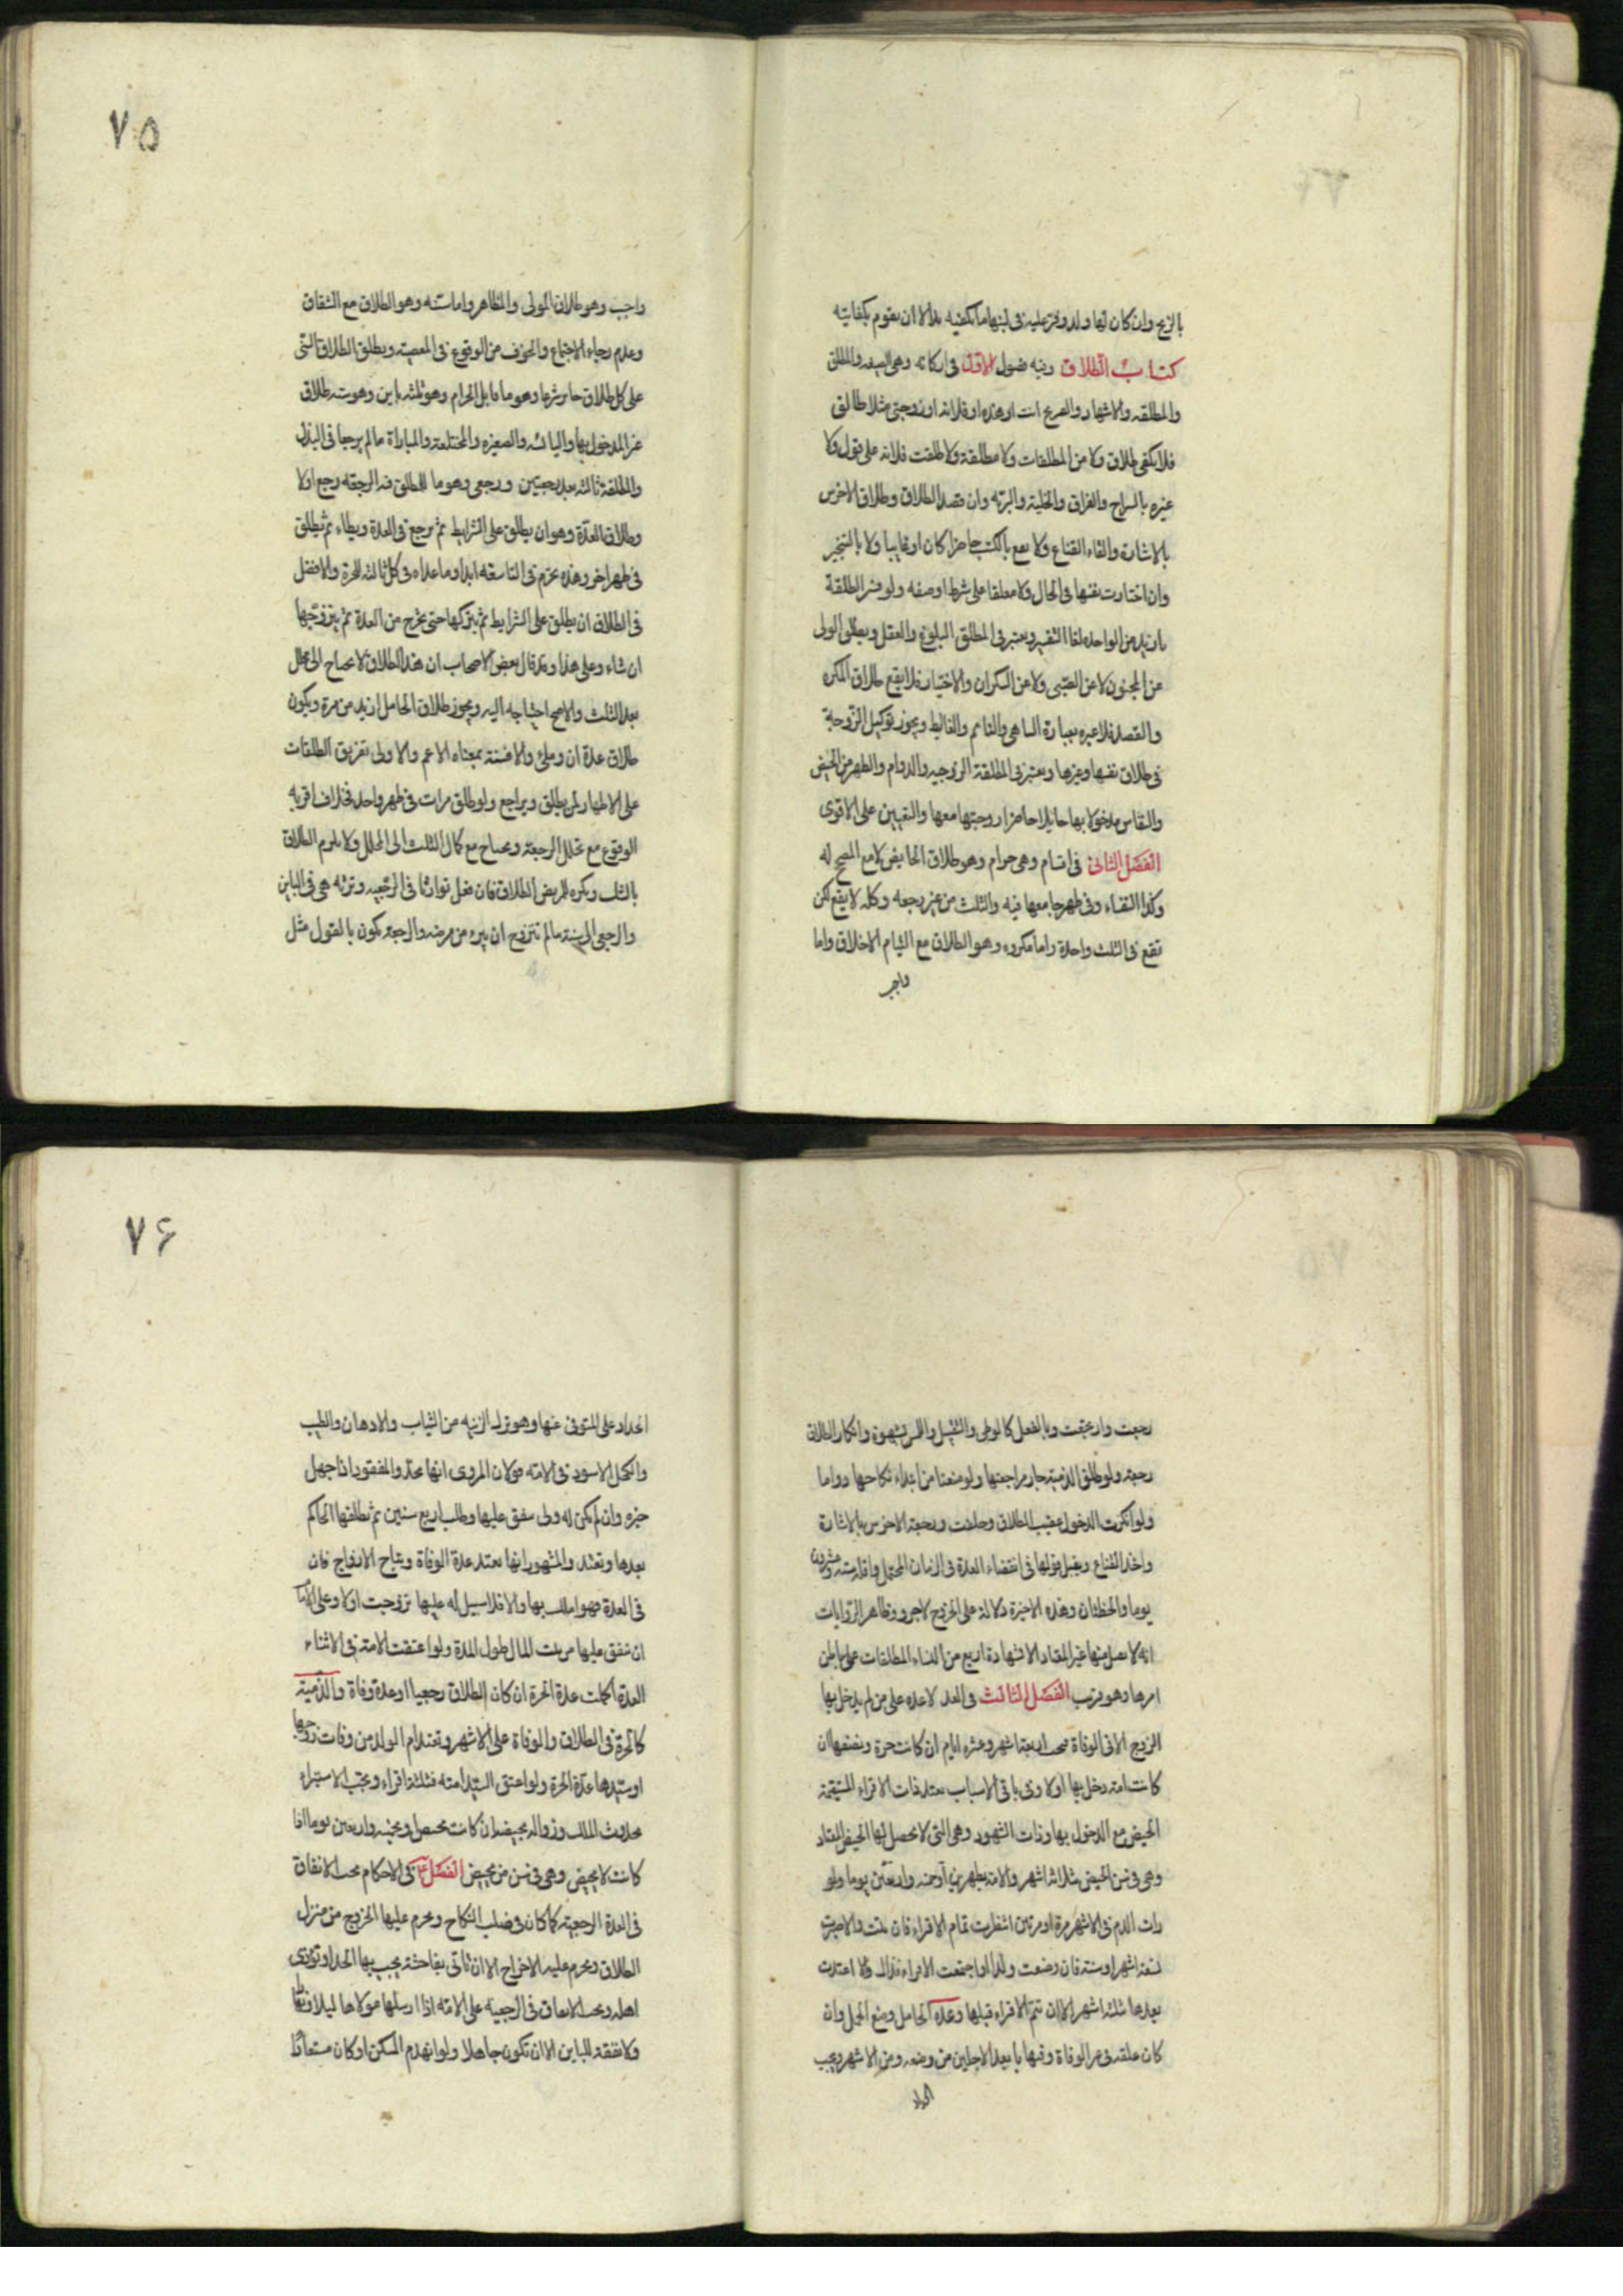 بالزنج وان كان لها ولد وفر عليه فى لبنها ما يكفيه الا ان يقوم بكفايته
كتاب الطلاق وفيه فصول الاول فى اركانه وهى الصيغه والمطلق
والمطلقه والاشهاد والصريح انت او هذه او فلانه او زوجتى مثلا طالق
فلا يكفى طلاق ولا من المطلقات ولا مطلقة ولا طلقت فلانه على قول ولا
غيره بالسراح والفراق والخلية والبرية وان قصد الطلاق وطلاق الاخرس
بالاشارة والقاء القناع ولا يقع بالكتب حاضرا كان او غايبا ولا بالتخيير
وان اختارت نفسها فى الحال ولا معلقا على شرط او صفه ولو فسر الطلقة
بازيد من الواحده لغا التفسير ويعتبر فى المطلق البلوغ والعقل ويطلق الولى
عن المجنون لا عن الصبى ولا عن السكران والاختيار فلا يقع طلاق المكره
والقصد فلا عبره بعبارة الساهى والنائم والغالط ويجوز توكيل الزوجة
فى طلاق نفسها وغيرها ويعتبر فى المطلقة الزوجيه والدوام والطهر من الحيض
والنفاس مدخولا بها حائلا حاضرا زوجها معها والتعيين على الاقوى
الفصل الثانى فى اقسامه وهى حرام وهو طلاق الحايض لا مع المصحح له
وكذا النفساء وفى طهر جامعها فيه والثلث من غير رجعه وكله لا يقع لكن
تقع فى الثلث واحدة واما مكروه وهو الطلاق مع التيام الاخلاق واما
واجب
٧٥
واجب وهو طلاق المولى والمظاهر واما سنه وهو الطلاق مع الشقاق
وعدم رجاء الاجتماع والخوف من الوقوع فى المعصية ويطلق الطلاق السنى
على كل طلاق جايز شرعا وهو ما قابل الحرام وهو ثلثه باين وهو سته طلاق
غير المدخول بها واليائسه والصغيره والمختلعة والمباراة ما لم يرجعا فى البذل
والمطلقة ثالثه بعد رجعتين ورجعى وهو ما للمطلق فيه الرجعه رجع اولا
وطلاق العدّة وهو ان يطلق على الشرايط ثم يرجع فى العدة ويطاء ثم يطلق
فى طهر اخر وهذه تحرم فى التاسعه ابدا وما عداه فى كل ثالثه للحرة والافضل
فى الطلاق ان يطلق على الشرايط ثم يتركها حتى تخرج من العدة ثم يتزوجها
ان شاء وعلى هذا وقد قال بعض الاصحاب ان هذا الطلاق لا يحتاج الى محلل
بعد الثلث والاصح احتياجه اليه ويجوز طلاق الحامل ازيد من مرة ويكون
طلاق عدة ان وطئ والا فسنة بمعناه الاعم والاولى تفريق الطلقات
على الاطهار لمن يطلق ويراجع ولو طلق مرات فى طهر واحد فخلاف اقربه
الوقوع مع تخلل الرجعة ويحتاج مع كمال الثلث الى المحلل ولا يلزم الطلاق
بالشك ويكره للمريض الطلاق فان فعل توارثا فى الرجعيه وترثه هى فى الباين
والرجعى الى سنة ما لم تتزوج او يبرء من مرضه والرجعة تكون بالقول مثل
رجعت وارتجعت وبالفعل كالوطى والتقبيل واللمس بشهوة وانكار الطلاق
رجعة ولو طلق الذمية جاز مراجعتها ولو منعنا من ابتداء نكاحها دواما
ولو انكرت الدخول عقيب الطلاق وحلفت ورجعة الاخرس بالاشارة
واخذ القناع ويقبل قولها فى انقضاء العدة فى الزمان المحتمل واقله ستة وعشرون
يوما ولحظتان وهذه الاخيرة دلالة على الخروج لا جزء وظاهر الروايات
انه لا يقبل منها غير المعتاد الا بشهادة اربع من النساء المطلعات على باطن
امرها وهو قريب الفصل الثالث فى العدد لا عده على من لم يدخل بها
الزوج الا فى الوفاة فيجب اربعة اشهر وعشره ايام ان كانت حرة ونصفها ان
كانت امة دخل بها اولا وفى باقى الاسباب تعتد ذات الاقراء المستقيمة
الحيض مع الدخول بها وذات الشهور وهى التى لا يحصل لها الحيض المعتاد
وهى فى سن الحيض بثلاثة اشهر والامة بطهرين او خمسه واربعين يوما ولو
رات الدم فى الاشهر مرة او مرتين انتظرت تمام الاقراء فان تمت والا صبرت
تسعة اشهر او سنة فان وضعت ولدا او اجتمعت الاقراء فذاك والا اعتدت
بعدها ثلثه اشهر الا ان تتم الاقراء قبلها وعده الحامل وضع الحمل وان
كان علقه فى غير الوفاة وفيها بابعد الاجلين من وضعه ومن الاشهر ويجب
الحداد
٧۶
الحداد على المتوفى عنها وهو ترك الزينه من الثياب والادهان والطيب
والكحل الاسود وفى الامه قولان المروى انها تحد والمفقود اذا جهل
خبره وان لم يكن له ولى ينفق عليها وطلب اربع سنين ثم يطلقها الحاكم
بعدها وتعتد والمشهور انها تعتد عدة الوفاة وتباح الازواج فان
فى العدة فهو املك بها والا فلا سبيل له عليها تزوجت اولا وعلى الامام
ان ينفق عليها من بيت المال طول المدة ولو اعتقت الامة فى الاثناء
العدة اكملت عدة الحرة ان كان الطلاق رجعيا او عدة وفاة والذمية
كالحرة فى الطلاق والوفاة على الاشهر وتعتد ام الولد من وفات زوجها
او سيدها عدة الحرة ولو اعتق السيد امته فثلثة اقراء ويجب الاستبراء
بحدوث الملك وزواله بحيضه ان كانت تحيض وبخمسه واربعين يوما اذا
كانت لا تحيض وهى فى سن من تحيض الفصل ٤ فى الاحكام يجب الانفاق
فى العدة الرجعية كما كان فى صلب النكاح ويحرم عليها الخروج من منزل
الطلاق ويحرم عليه الاخراج الا ان تأتى بفاحشة يجب بها الحد او توذى
اهله ويجب الانفاق فى الرجعية على الامه اذا ارسلها مولاها ليلا ونهارا
ولا نفقة للباين الا ان تكون حاملا ولو انهدم المسكن او كان مستعارا